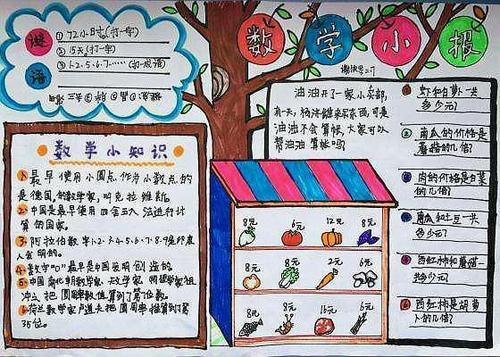 数学小报
谜语
① 72小时(打一字)
② 15天(打一字)
③ 1·2·5·6·7……(打一成语)
数学小知识
1. 最早使用小圆点作为小数点的
是德国的数学家,叫克拉维斯。
2. 中国是最早使用四舍五入法进行计
算的国家。
3. 阿拉伯数字1·2·3·4·5·6·7·8·9
人发明的。
4. 数字"0"最早是中国发明创造的。
5. 中国南北朝数学家、天文学家、物理学家祖
冲之把圆周率数值
6. 荷兰数学家卢道夫把圆周率推算到第
35位。
油油开了一家小卖部,
有一天,
油油不会算帐,大家可以
帮油油算帐吗?
8元
6元
12元
8元
8元
8元
2元
6元
8元
8元
16元
6元
① 虾和白萝卜一共
多少元?
② 南瓜的价格是
蘑菇的几倍?
③ 肉的价格是白菜
的几倍?
④ 南瓜和土豆一共
多少元?
⑤ 西红柿和蘑菇一
共多少元?
⑥ 西红柿是胡萝
卜的几倍?